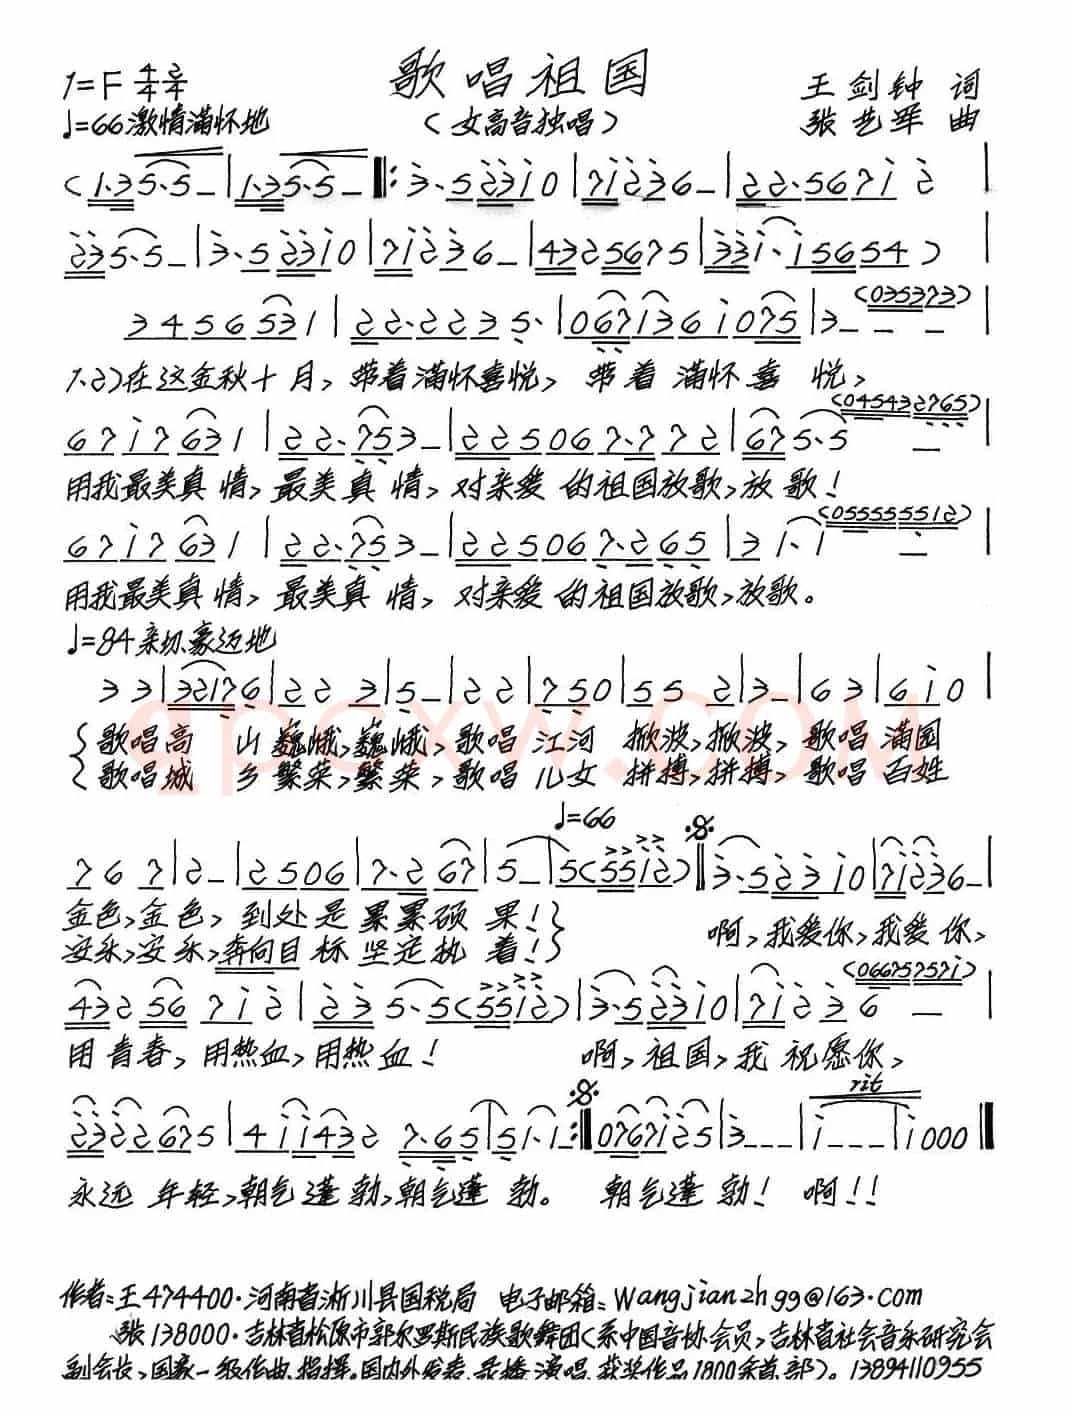 歌唱祖国
1=F 4/4 2/4
王剑钟 词
♩=66激情满怀地
(女高音独唱)
张艺军 曲
(1·35·5-|1·35·5-‖:3·52310|71236-|22·5671 2
235·5-|3·52310|71236-|4325675|331·15654)
3456531|22·223 5·|067136 1075|3---(035373)
1.2)在这金秋十月,带着满怀喜悦,带着满怀喜悦,
6717631|22·753-|225067·772|675·5-(045432765)
用我最美真情,最美真情,对亲爱的祖国放歌,放歌!
6717631|22·753-|225067·265|31·1-(055555512)
用我最美真情,最美真情,对亲爱的祖国放歌,放歌。
♩=84亲切、豪迈地
33|32176|22 3|5-|22|750|55 2|3-|63|610
歌唱高山巍峨,巍峨,歌唱江河掀波,掀波,歌唱满园
歌唱城乡繁荣,繁荣,歌唱儿女拼搏,拼搏,歌唱百姓
qpcxw.com
♩=66
767|2-|2506|7·267|5-|5(5512)‖3·52310|71236-|
金色,金色,到处是累累硕果!
安乐,安乐,奔向目标坚定执着!
啊,我爱你,我爱你,
43256 712|235·5(5512)|3·52310|71236-(06675757i)
用青春,用热血,用热血!啊,祖国,我祝愿你,
rit
2322675|411432 7·65|51·1:‖0767125|3---|1---|1000‖
永远年轻,朝气蓬勃,朝气蓬勃。朝气蓬勃!啊!!
作者:王474400·河南省淅川县国税局 电子邮箱:Wangjianzhgg@163·com
张138000·吉林省松原市郭尔罗斯民族歌舞团(系中国音协会员,吉林省社会音乐研究会
副会长,国家一级作曲、指挥。国内外发表、录播、演唱、获奖作品1800余首、部)。13894110955